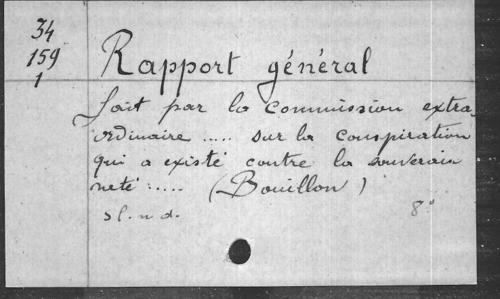 34
159
1
Rapport général
fait par la commission extra-
ordinaire ..... sur la conspiration
qui a existé contre la souverai
neté ..... (Bouillon)
s l. n d. 8°